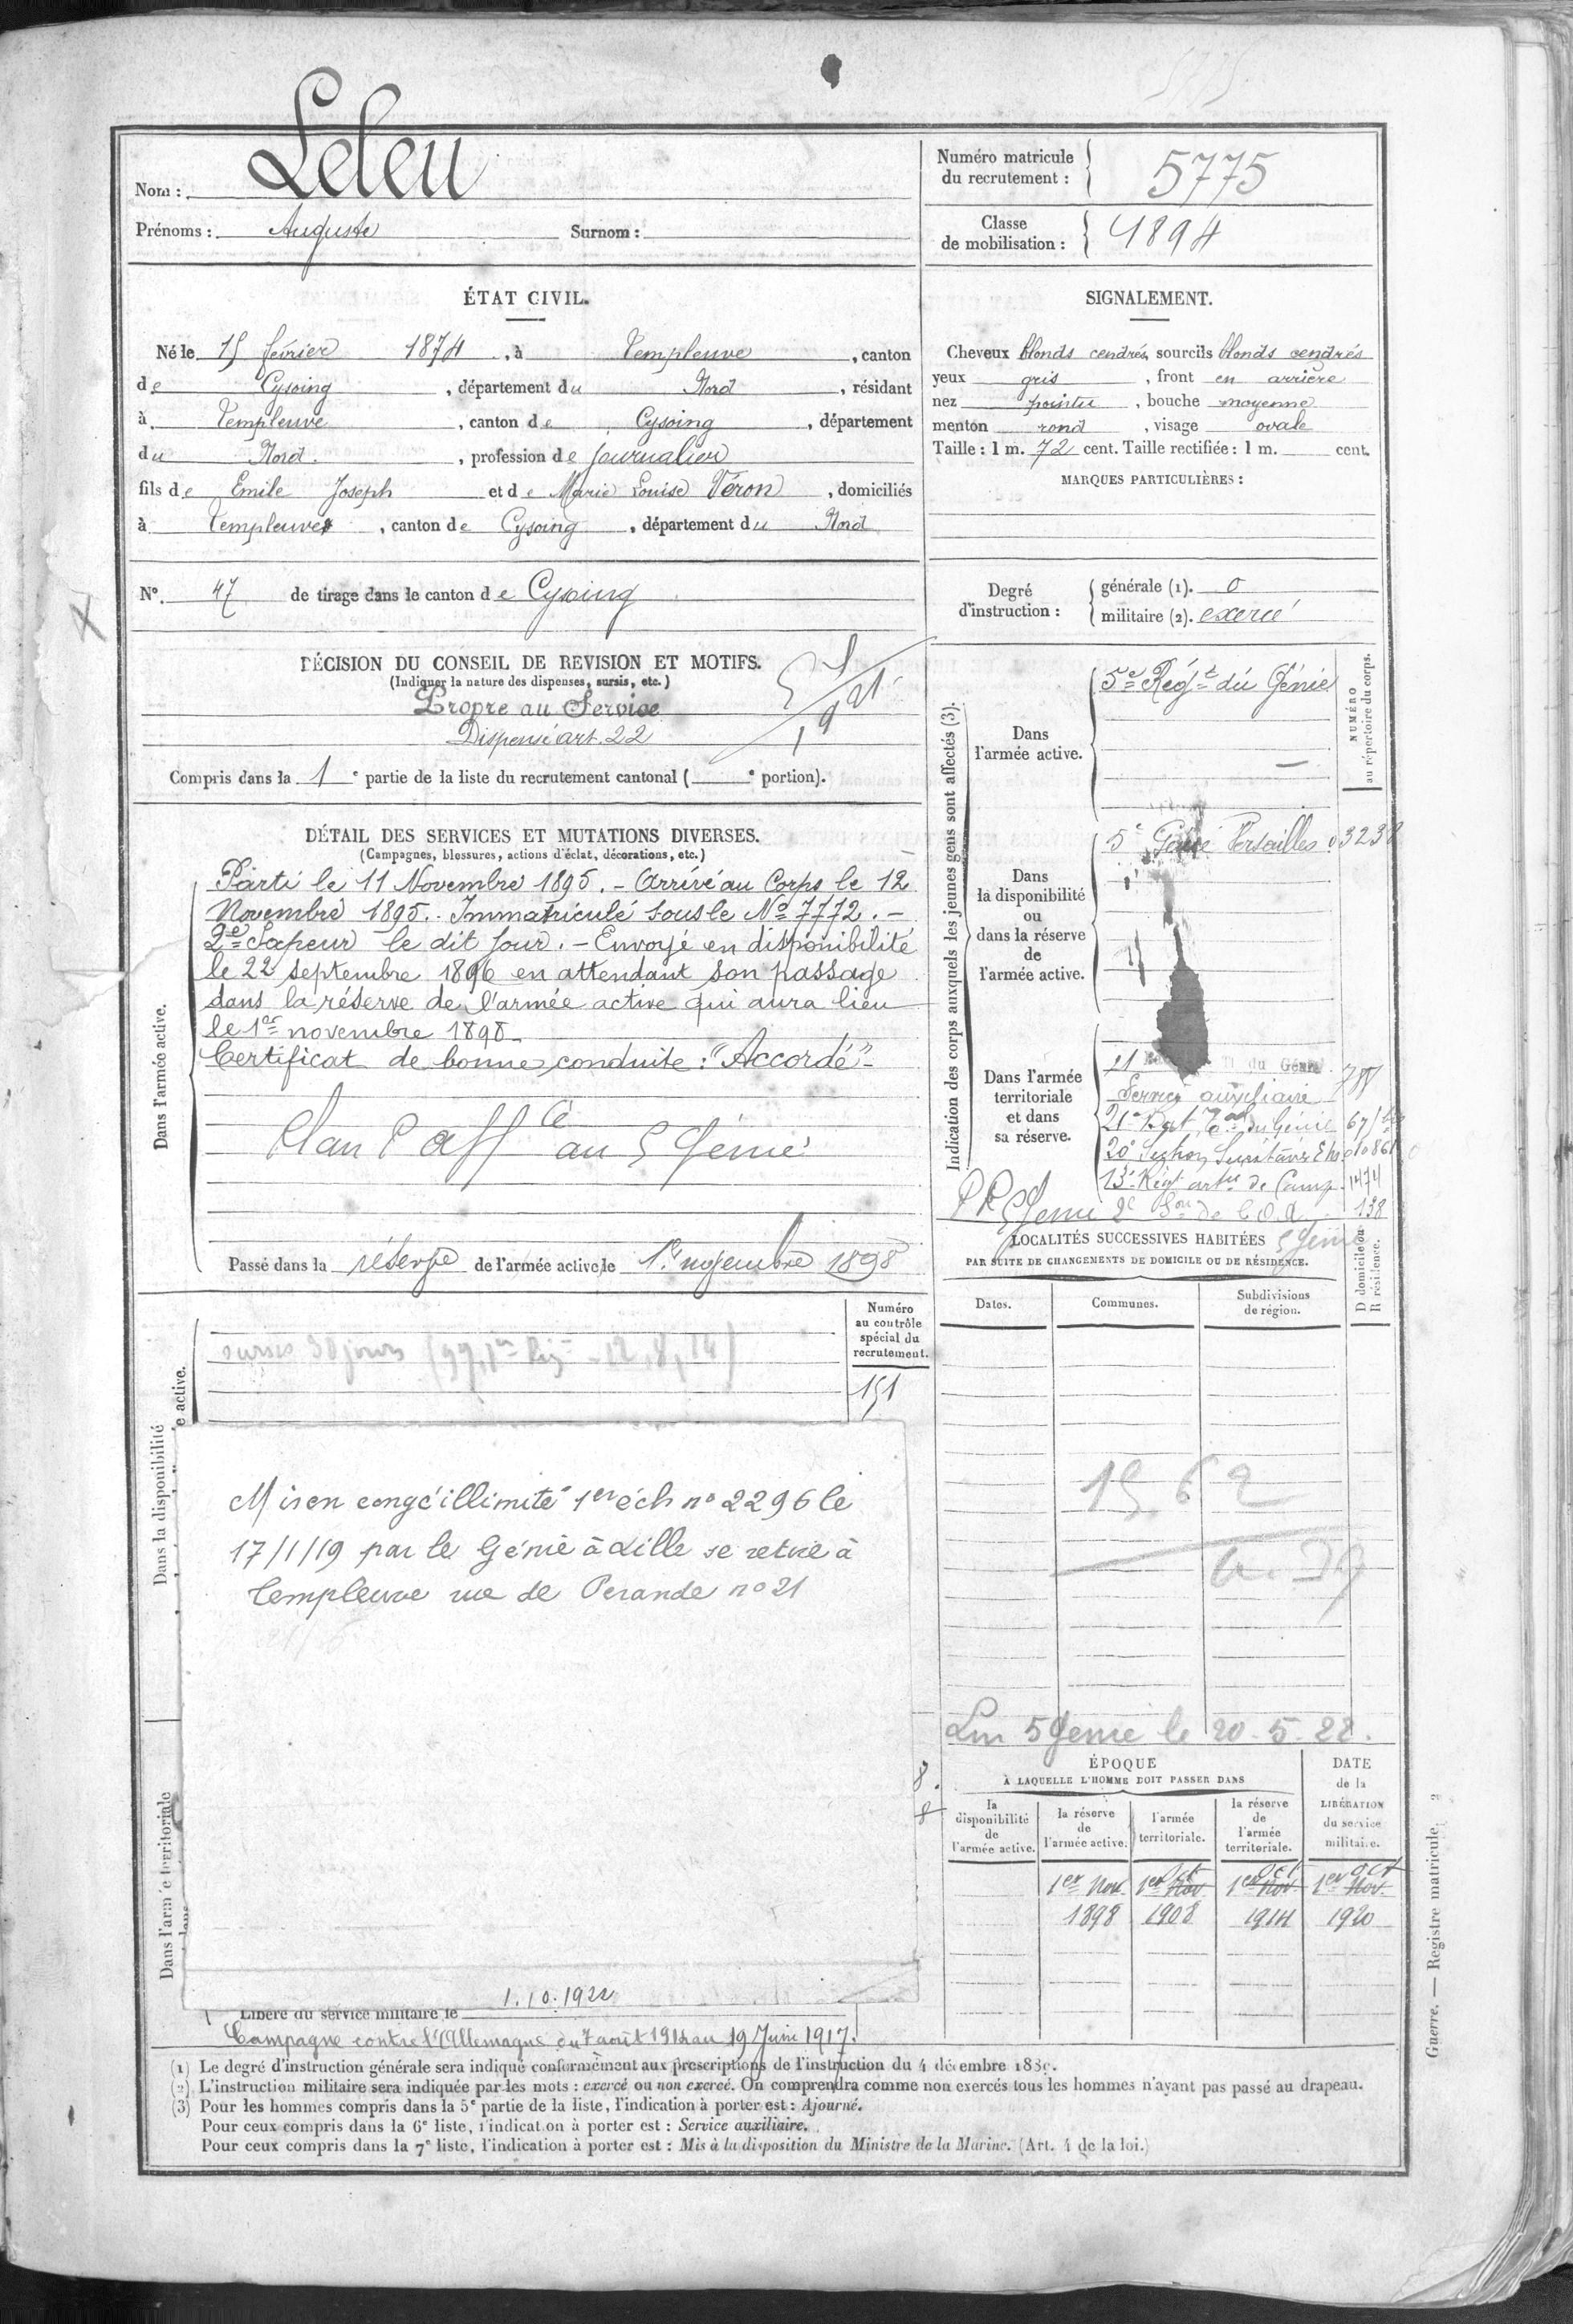 Leleu
Nom :
Prénoms : Auguste Surnom :
Numéro matricule
du recrutement : 5775
Classe
de mobilisation : 1894
ÉTAT CIVIL.
Né le 15 février 1874, à Templeuve, canton
de Cysoing, département du Nord, résidant
à Templeuve, canton de Cysoing, département
du Nord, profession de journalier
fils de Emile Joseph et de Marie Louise Véron, domiciliés
à Templeuve, canton de Cysoing, département du Nord
SIGNALEMENT.
Cheveux blonds cendrés, sourcils blonds cendrés
yeux gris, front en arrière
nez pointu, bouche moyenne
menton rond, visage ovale
Taille : 1 m. 72 cent. Taille rectifiée : 1 m. cent.
MARQUES PARTICULIÈRES :
N° 47 de tirage dans le canton de Cysoing
Degré
d'instruction :
générale (1). 0
militaire (2). exercé
DÉCISION DU CONSEIL DE REVISION ET MOTIFS.
(Indiquer la nature des dispenses, sursis, etc.)
Propre au Service
Dispensé art. 22
Compris dans la 1e partie de la liste du recrutement cantonal ( e portion).
DÉTAIL DES SERVICES ET MUTATIONS DIVERSES.
(Campagnes, blessures, actions d'éclat, décorations, etc.)
Dans l'armée active.
Parti le 11 Novembre 1895. - Arrivé au Corps le 12
Novembre 1895. Immatriculé sous le No 7772. -
2e Sapeur le dit jour. - Envoyé en disponibilité
le 22 septembre 1896 en attendant son passage
dans la réserve de l'armée active qui aura lieu
le 1er novembre 1898
Certificat de bonne conduite : "Accordé" -
Plan P aff cé au 5 Génie
Passé dans la réserve de l'armée active le 1er novembre 1898
Numéro
au contrôle
spécial du
recrutement.
151
sursis 30 jours
Dans la disponibilité
e active.
Mis en congé illimité 1er éch no 2296 le
17/1/19 par le Génie à Lille se retire à
Templeuve rue de no 21
Dans l'armée territoriale
Libéré du service militaire le 1.10.1922
Campagne contre l'Allemagne du 7 août 1914 au 19 Juin 1917.
Indication des corps auxquels les jeunes gens sont affectés (3).
NUMÉRO
au répertoire du corps.
Dans
l'armée active.
5e Régt du Génie
Dans
la disponibilité
ou
dans la réserve
de
l'armée active.
5e Génie Versailles 03238
Dans l'armée
territoriale
et dans
sa réserve.
21 du Génie
Service auxiliaire
21e Bat Tal du Génie
13e Régt artie de Camp 1474
5 Génie 2e Son de C.O.A 138
LOCALITÉS SUCCESSIVES HABITÉES
PAR SUITE DE CHANGEMENTS DE DOMICILE OU DE RÉSIDENCE.
5 Génie
Dates.
Communes.
Subdivisions
de région.
D domicile ou
R résidence.
1562
5 Genie le 20-5-22.
ÉPOQUE
À LAQUELLE L'HOMME DOIT PASSER DANS
DATE
de la
LIBÉRATION
du service
militaire.
la
disponibilité
de
l'armée active.
la réserve
de
l'armée active.
l'armée
territoriale.
la réserve
de
l'armée
territoriale.
Oct Oct Oct
1er Nov. 1er Nov 1er Nov 1er Nov.
1898 1908 1914 1920
(1) Le degré d'instruction générale sera indiqué conformément aux prescriptions de l'instruction du 4 décembre 1889.
(2) L'instruction militaire sera indiquée par les mots : exercé ou non exercé. On comprendra comme non exercés tous les hommes n'ayant pas passé au drapeau.
(3) Pour les hommes compris dans la 5e partie de la liste, l'indication à porter est : Ajourné.
Pour ceux compris dans la 6e liste, l'indication à porter est : Service auxiliaire.
Pour ceux compris dans la 7e liste, l'indication à porter est : Mis à la disposition du Ministre de la Marine. (Art. 4 de la loi.)
Guerre. — Registre matricule. 2